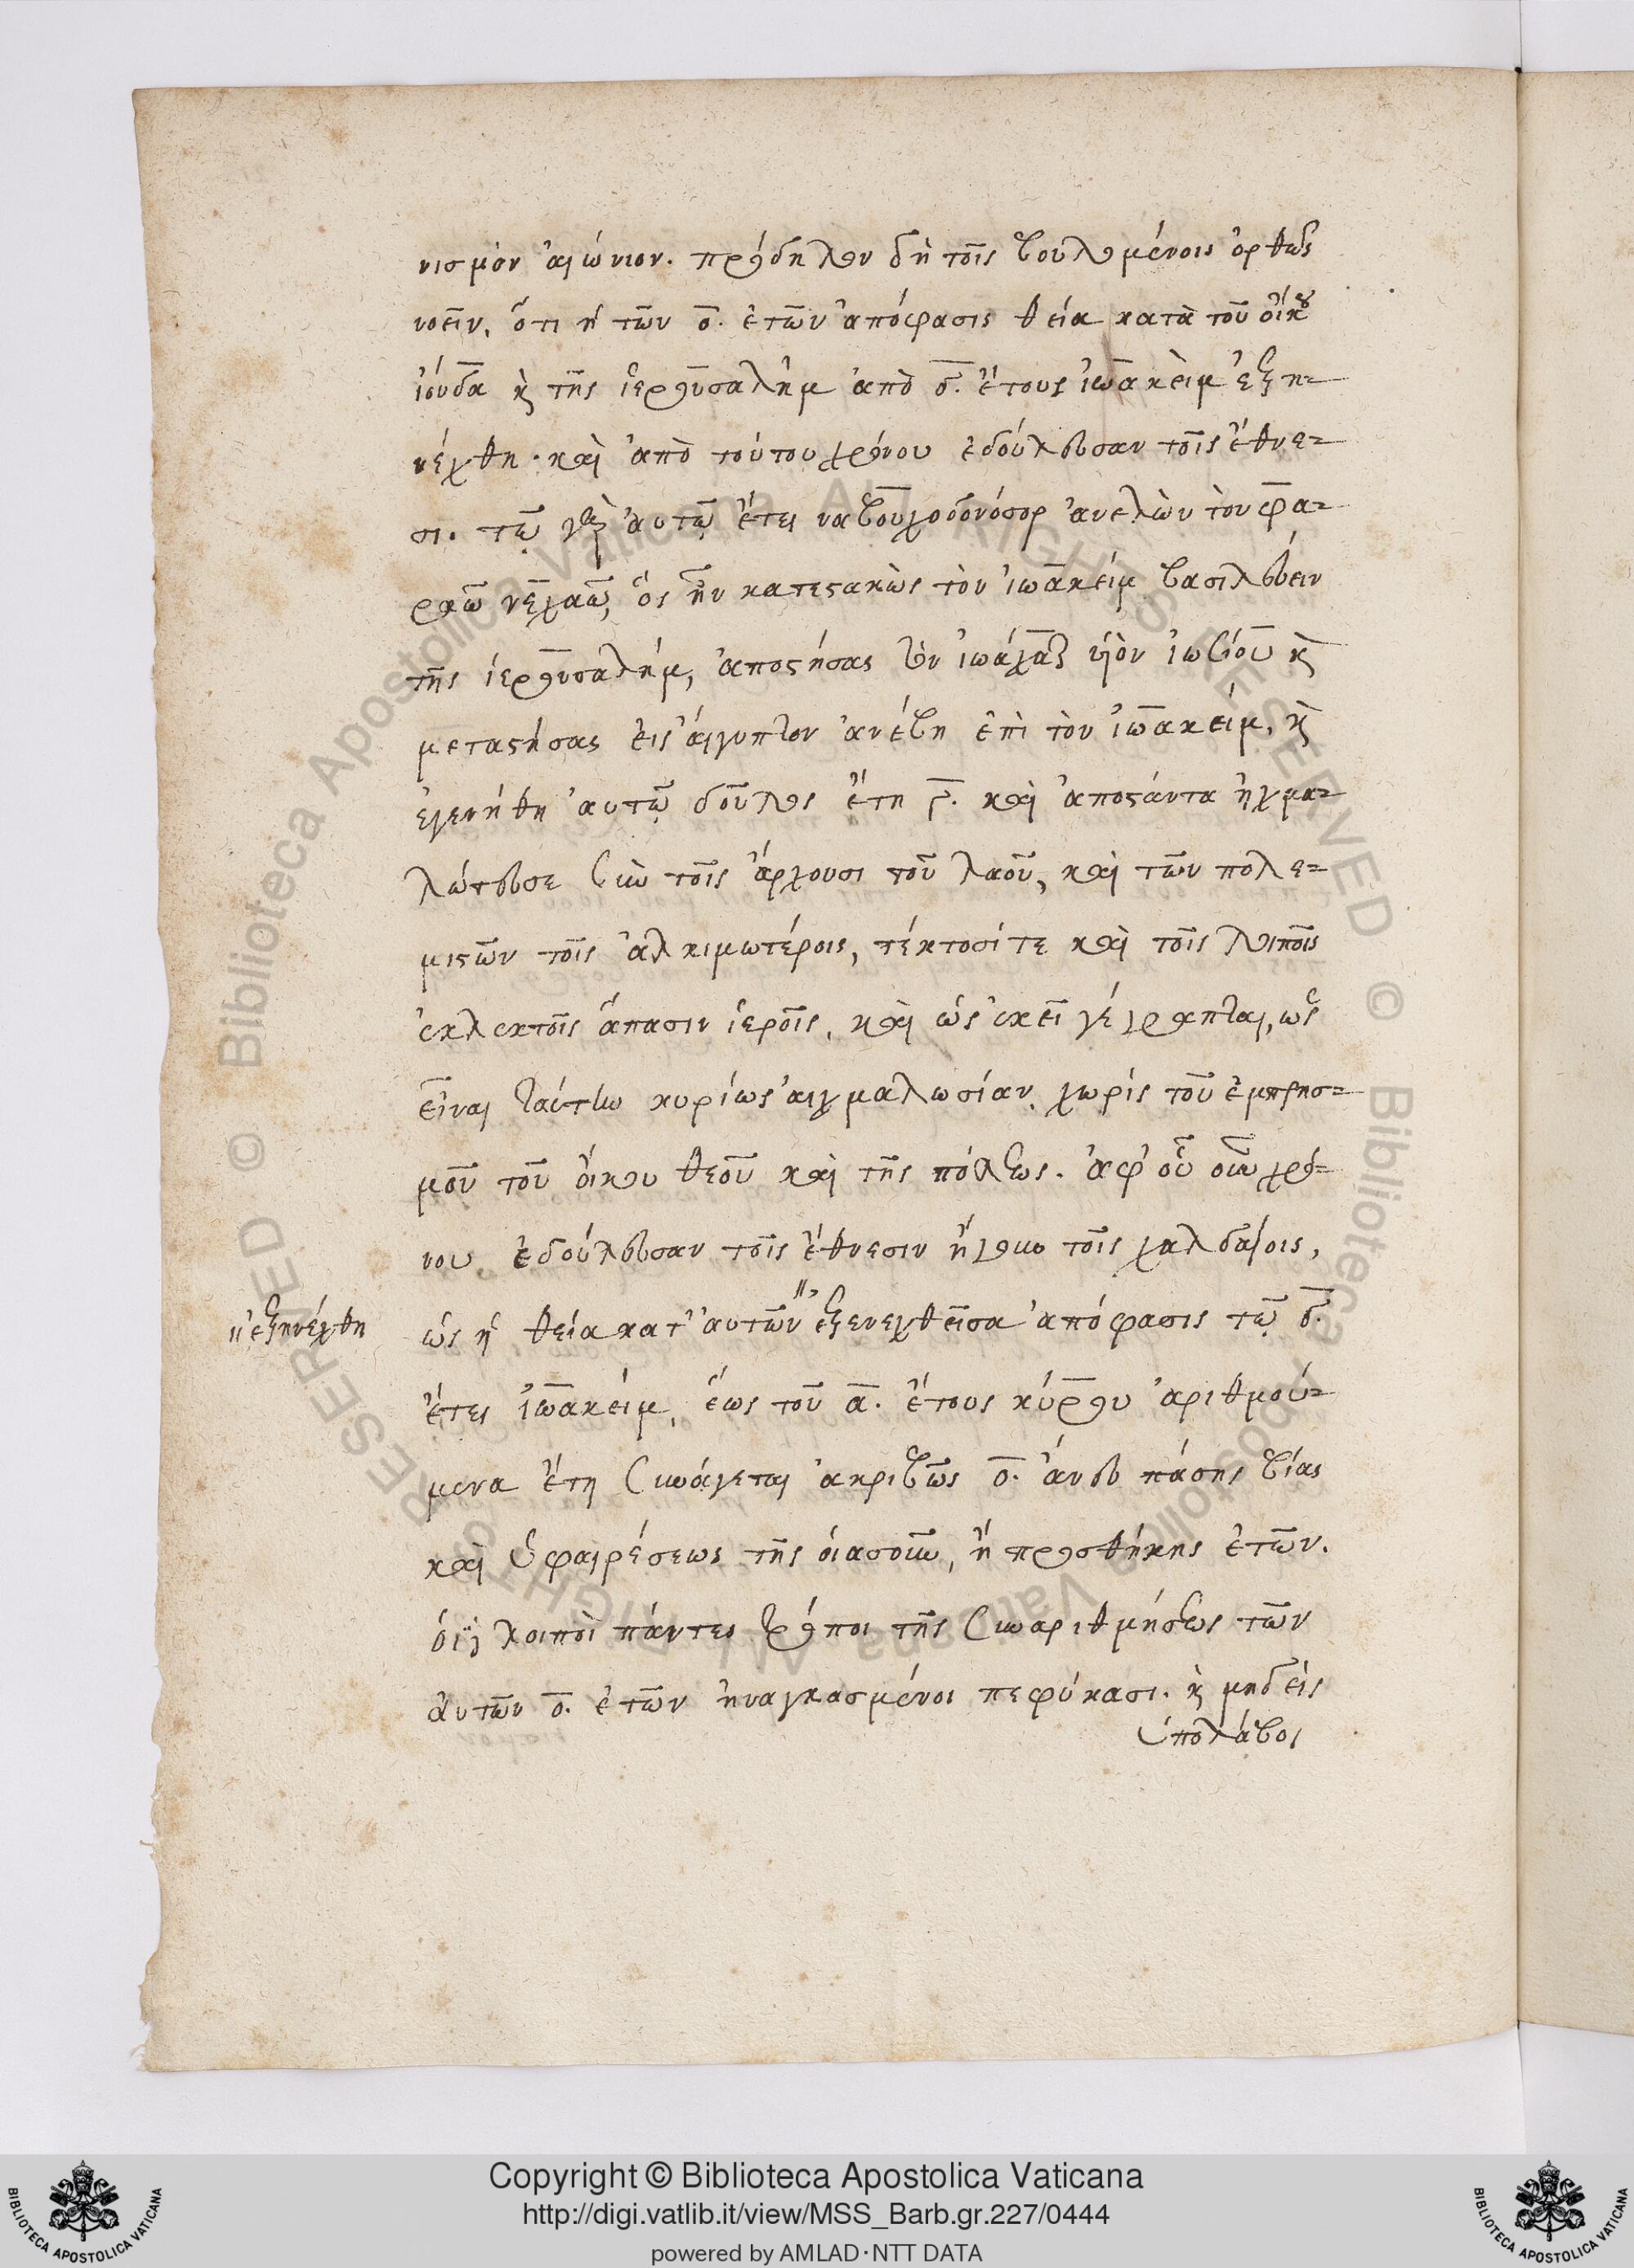 νισμὸν αἰώνιον. πρόδηλον δὴ τοῖς βουλομένοις ὀρθῶς
νοεῖν, ὅτι ἡ τῶν ο̅. ἐτῶν ἀπόφασις θεία κατὰ τοῦ οἴκου
ἰούδα κ̀ τῆς ἱερουσαλὴμ ἀπὸ δ̅. ἔτους ἰωακεὶμ ἐξη=
νέχθη· καὶ ἀπὸ τούτου χρόνου ἐδούλευσαν τοῖς ἔθνε=
σι. τῷ γὰρ αὐτῷ ἔτει ναβουχοδονόσορ ἀνελὼν τὸν φα=
ραὼ νεχαὼ, ὃς ἦν κατεστακὼς τὸν ἰωακεὶμ βασιλεύειν
τῆς ἱερουσαλήμ, ἀποστήσας τὸν ἰωάχαζ υἱὸν ἰωσίου κ̀
μεταστήσας εἰς αἴγυπτον ἀνέβη ἐπὶ τὸν ἰωακείμ, κ̀
ἐγενήθη αὐτῷ δοῦλος ἔτη γ̅. καὶ ἀποστάντα ᾐχμα=
λώτευσε σὺν τοῖς ἄρχουσι τοῦ λαοῦ, καὶ τῶν πολε=
μιστῶν τοῖς ἀλκιμωτέροις, τέκτοσί τε καὶ τοῖς λοιποῖς
ἐκλεκτοῖς ἅπασιν ἱεροῖς, καὶ ὡς ἐκεῖ γέγραπται, ὡς
εἶναι ταύτην κυρίως αἰχμαλωσίαν χωρὶς τοῦ ἐμπρησ=
μοῦ τοῦ οἴκου θεοῦ καὶ τῆς πόλεως. ἀφ' οὗ οὖν χρό=
νου ἐδούλευσαν τοῖς ἔθνεσιν ἤγουν τοῖς χαλδαίοις,
ὡς ἡ θεία κατ' αὐτῶν " ἐξενεχθεῖσα ἀπόφασις τῷ δ̅.
" ἐξηνέχθη
ἔτει ἰωακείμ, ἕως τοῦ α̅. ἔτους κύρου ἀριθμού=
μενα ἔτη συνάγεται ἀκριβῶς ο̅. ἄνευ πάσης βίας
καὶ ὑφαιρέσεως τῆς οἱασοῦν, ἢ προσθήκης ἐτῶν.
οἱ γὰρ λοιποὶ πάντες τρόποι τῆς συναριθμήσεως τῶν
αὐτῶν ο̅. ἐτῶν ἠναγκασμένοι πεφύκασι. κ̀ μηδεὶς
ὑπολάβοι
Copyright © Biblioteca Apostolica Vaticana
http://digi.vatlib.it/view/MSS_Barb.gr.227/0444
powered by AMLAD·NTT DATA
BIBLIOTECA APOSTOLICA VATICANA
BIBLIOTECA APOSTOLICA VATICANA